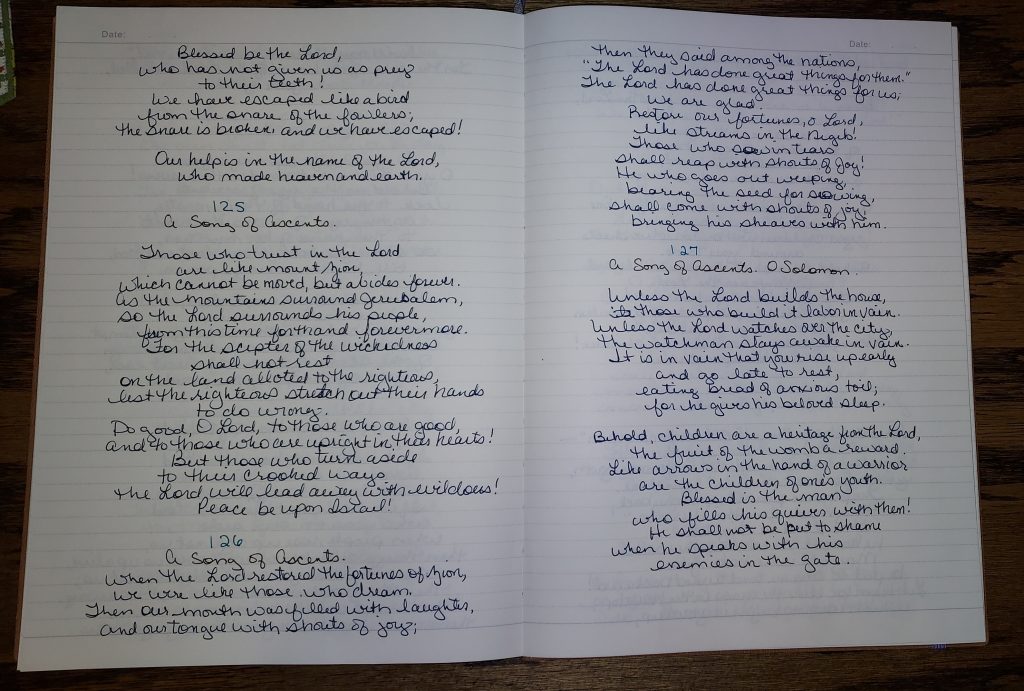 Date:
Blessed be the Lord,
who has not given us as prey
to their teeth!
We have escaped like a bird
from the snare of the fowlers;
the snare is broken, and we have escaped!
Our help is in the name of the Lord,
who made heaven and earth.
125
A Song of Ascents.
Those who trust in the Lord
are like mount Zion,
which cannot be moved, but abides forever.
As the mountains surround Jerusalem,
so the Lord surrounds his people,
from this time forth and forevermore.
For the scepter of the wickedness
shall not rest
on the land allotted to the righteous,
lest the righteous stretch out their hands
to do wrong.
Do good, O Lord, to those who are good,
and to those who are upright in their hearts!
But those who turn aside
to their crooked ways
the Lord will lead away with evildoers!
Peace be upon Israel!
126
A Song of Ascents.
When the Lord restored the fortunes of Zion,
we were like those who dream.
Then our mouth was filled with laughter,
and our tongue with shouts of joy;
Date:
then they said among the nations,
"The Lord has done great things for them."
The Lord has done great things for us;
we are glad.
Restore our fortunes, O Lord,
like streams in the Negeb!
Those who sow in tears
shall reap with shouts of joy!
He who goes out weeping,
bearing the seed for sowing,
shall come with shouts of joy,
bringing his sheaves with him.
127
A Song of Ascents. O Solomon.
Unless the Lord builds the house,
those who build it labor in vain.
Unless the Lord watches over the city,
the watchman stays awake in vain.
It is in vain that you rise up early
and go late to rest,
eating bread of anxious toil;
for he gives his beloved sleep.
Behold, children are a heritage from the Lord,
the fruit of the womb a reward.
Like arrows in the hand of a warrior
are the children of one's youth.
Blessed is the man
who fills his quiver with them!
He shall not be put to shame
when he speaks with his
enemies in the gate.